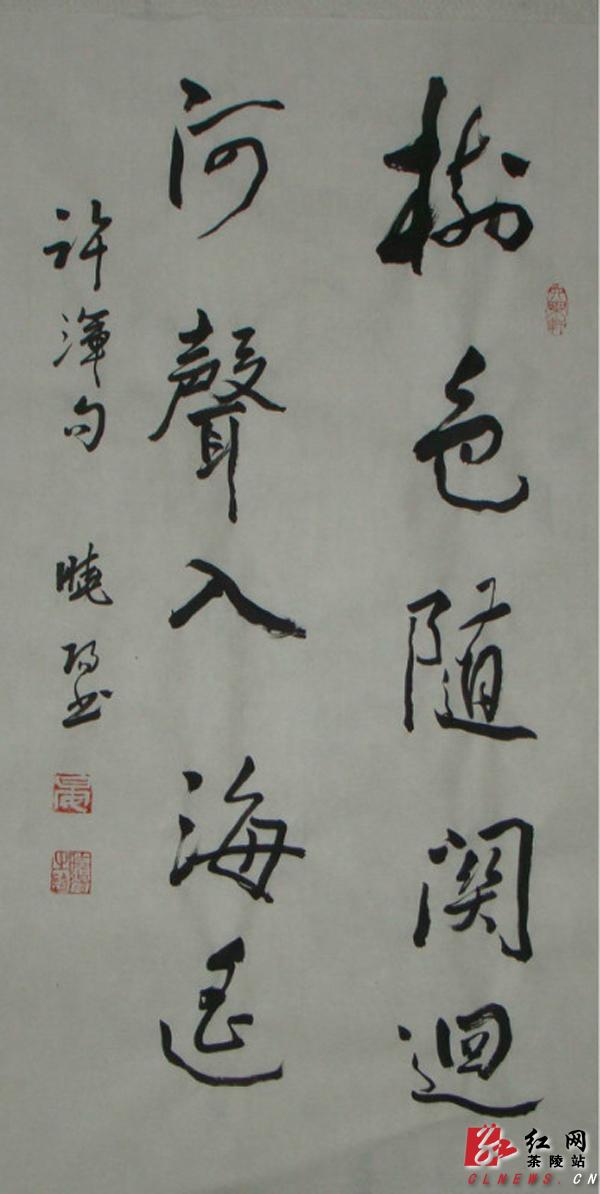 樹色随関迴
河聲入海遥
許渾句
曉
书
红网
茶陵站
CLNEWS.CN